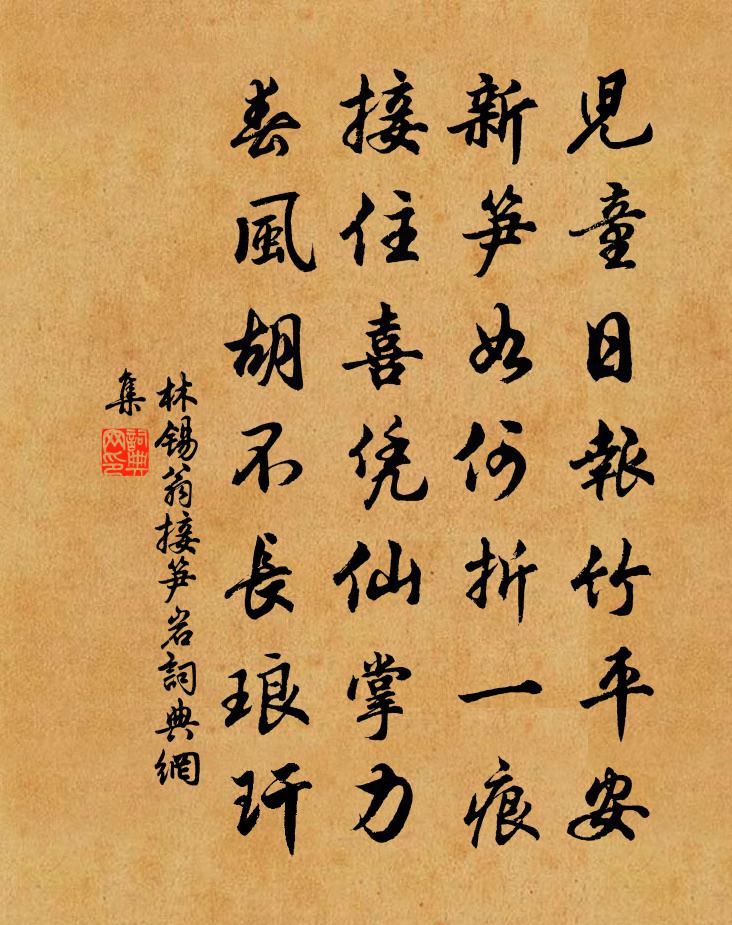 児童日報竹平安
新笋如何折一痕
接住喜凭仙掌力
春風胡不長琅玕
林錫翁接笋岩詞典網
集
詞典
网印